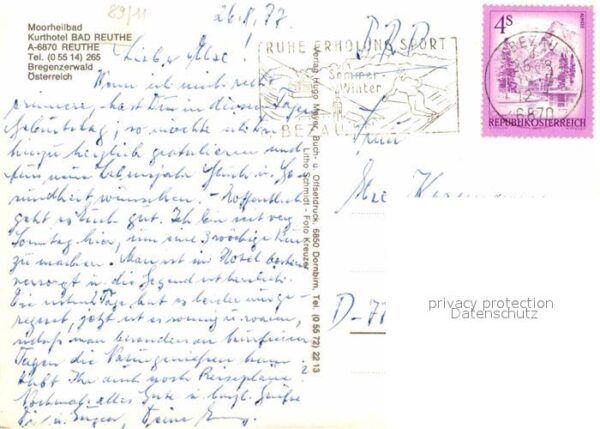 89/11
26.8.77
Moorheilbad
Kurhotel BAD REUTHE
A-6870 REUTHE
Tel. (0 55 14) 265
Bregenzerwald
Österreich
Liebe Else!
Wenn ich mich recht
erinnere, hast Du in diesen Tagen
Geburtstag, so möchte ich
herzlich gratulieren und
fürs neue Lebensjahr Glück u. Ge-
sundheit wünschen. Hoffentlich
geht es Euch gut. Ich bin seit
Sonntag hier, um eine 3 wöchige Kur
zu machen. Man ist im Hotel bestens
versorgt u. die Gegend ist herrlich.
Die ersten Tage hat es leider ausge-
regnet, jetzt ist es sonnig u. warm,
sodaß man besonders an kurfreien
Tagen die Natur genießen kann.
Habt Ihr auch noch Reisepläne?
Nochmals alles Gute u. herzl. Grüße
Deine
Verlag Hugo Mayer, Buch- u. Offsetdruck, 6850 Dornbirn, Tel. (0 55 72) 22 13
Litho Schmidt - Foto Kreuzer
BRD
RUHE ERHOLUNG SPORT
Sommer
Winter
BEZAU
BEZAU
6870
4 S
REPUBLIK ÖSTERREICH
Frau
D-77
privacy protection
Datenschutz